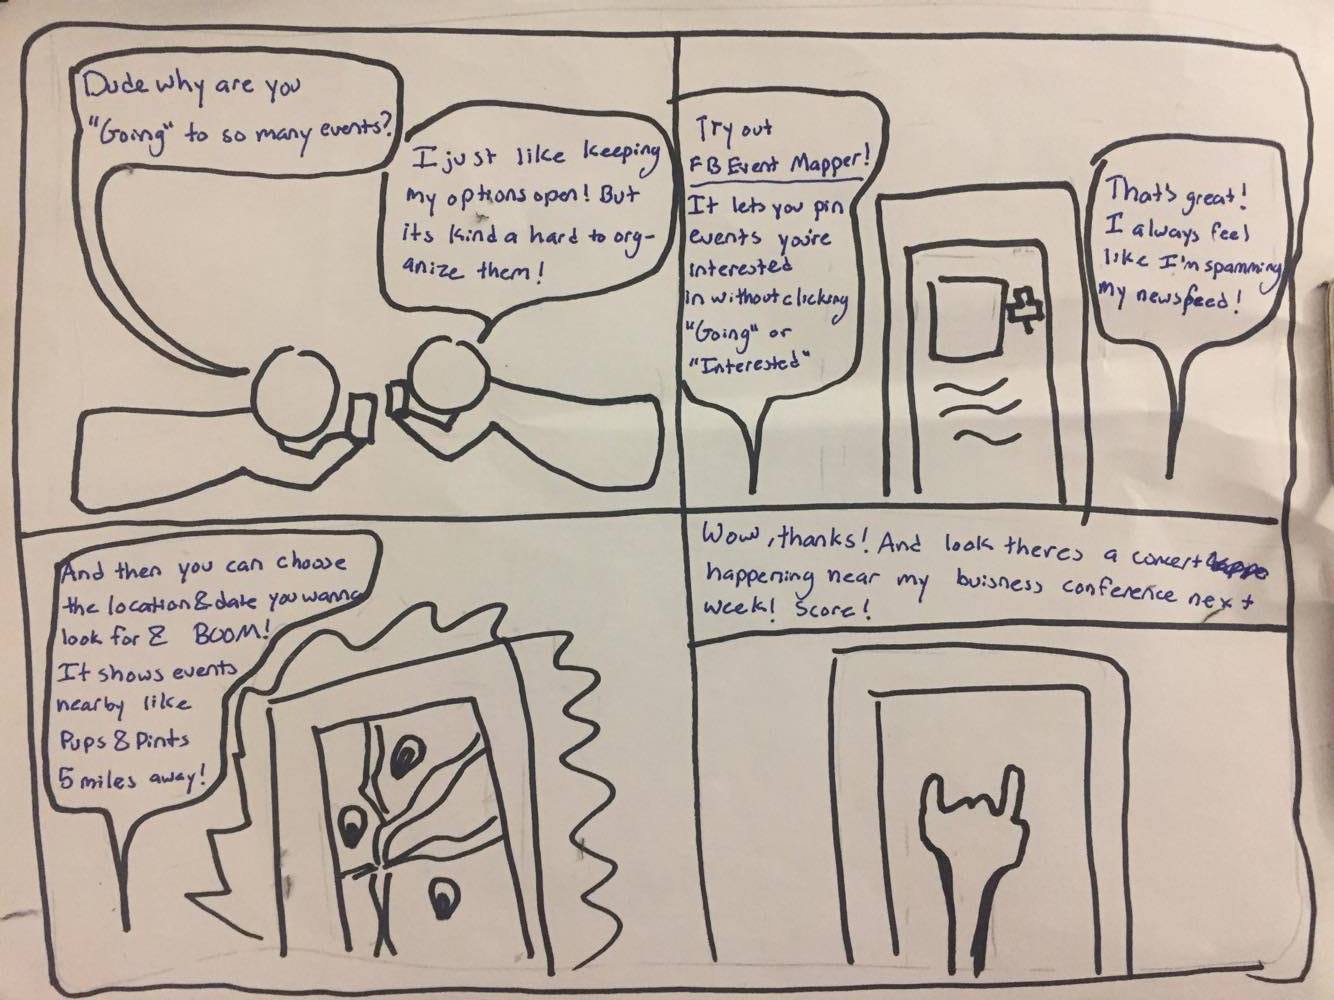 Dude why are you
"Going" to so many events?
I just like keeping
my options open! But
its kinda hard to org-
anize them!
Try out
FB Event Mapper!
It lets you pin
events you're
interested
in without clicking
"Going" or
"Interested"
That's great!
I always feel
like I'm spamming
my newsfeed!
And then you can choose
the location & date you wanna
look for & BOOM!
It shows events
nearby like
Pups & Pints
5 miles away!
Wow, thanks! And look theres a concert
happening near my buisness conference next
week! Score!